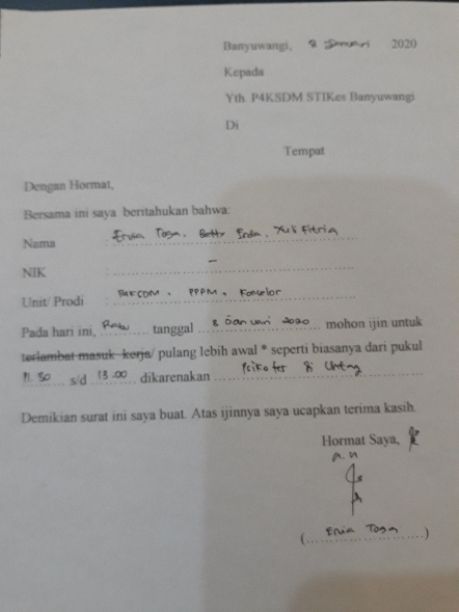 Banyuwangi, 8 Januari 2020
Kepada
Yth. P4KSDM STIKes Banyuwangi
Di
Tempat
Dengan Hormat,
Bersama ini saya beritahukan bahwa:
Nama : Ervia Toga, Betty Inda, Yuli Fitria
NIK : -
Unit/ Prodi : PPPM, Konselor
Pada hari ini, Rabu tanggal 8 Januari 2020 mohon ijin untuk
terlambat masuk kerja/ pulang lebih awal * seperti biasanya dari pukul
11.30 s/d 13.00 dikarenakan Psikotes di Untag
Demikian surat ini saya buat. Atas ijinnya saya ucapkan terima kasih.
Hormat Saya,
a.n
(Ervia Toga)